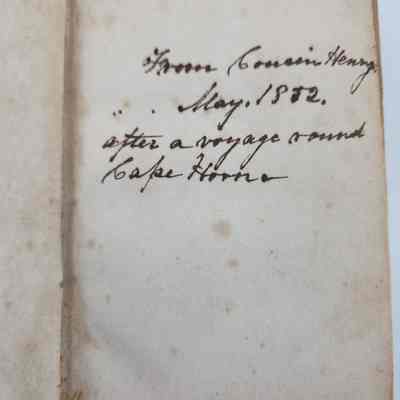 From Cousin Henry
" . May. 1852.
after a voyage round
Cape Horn